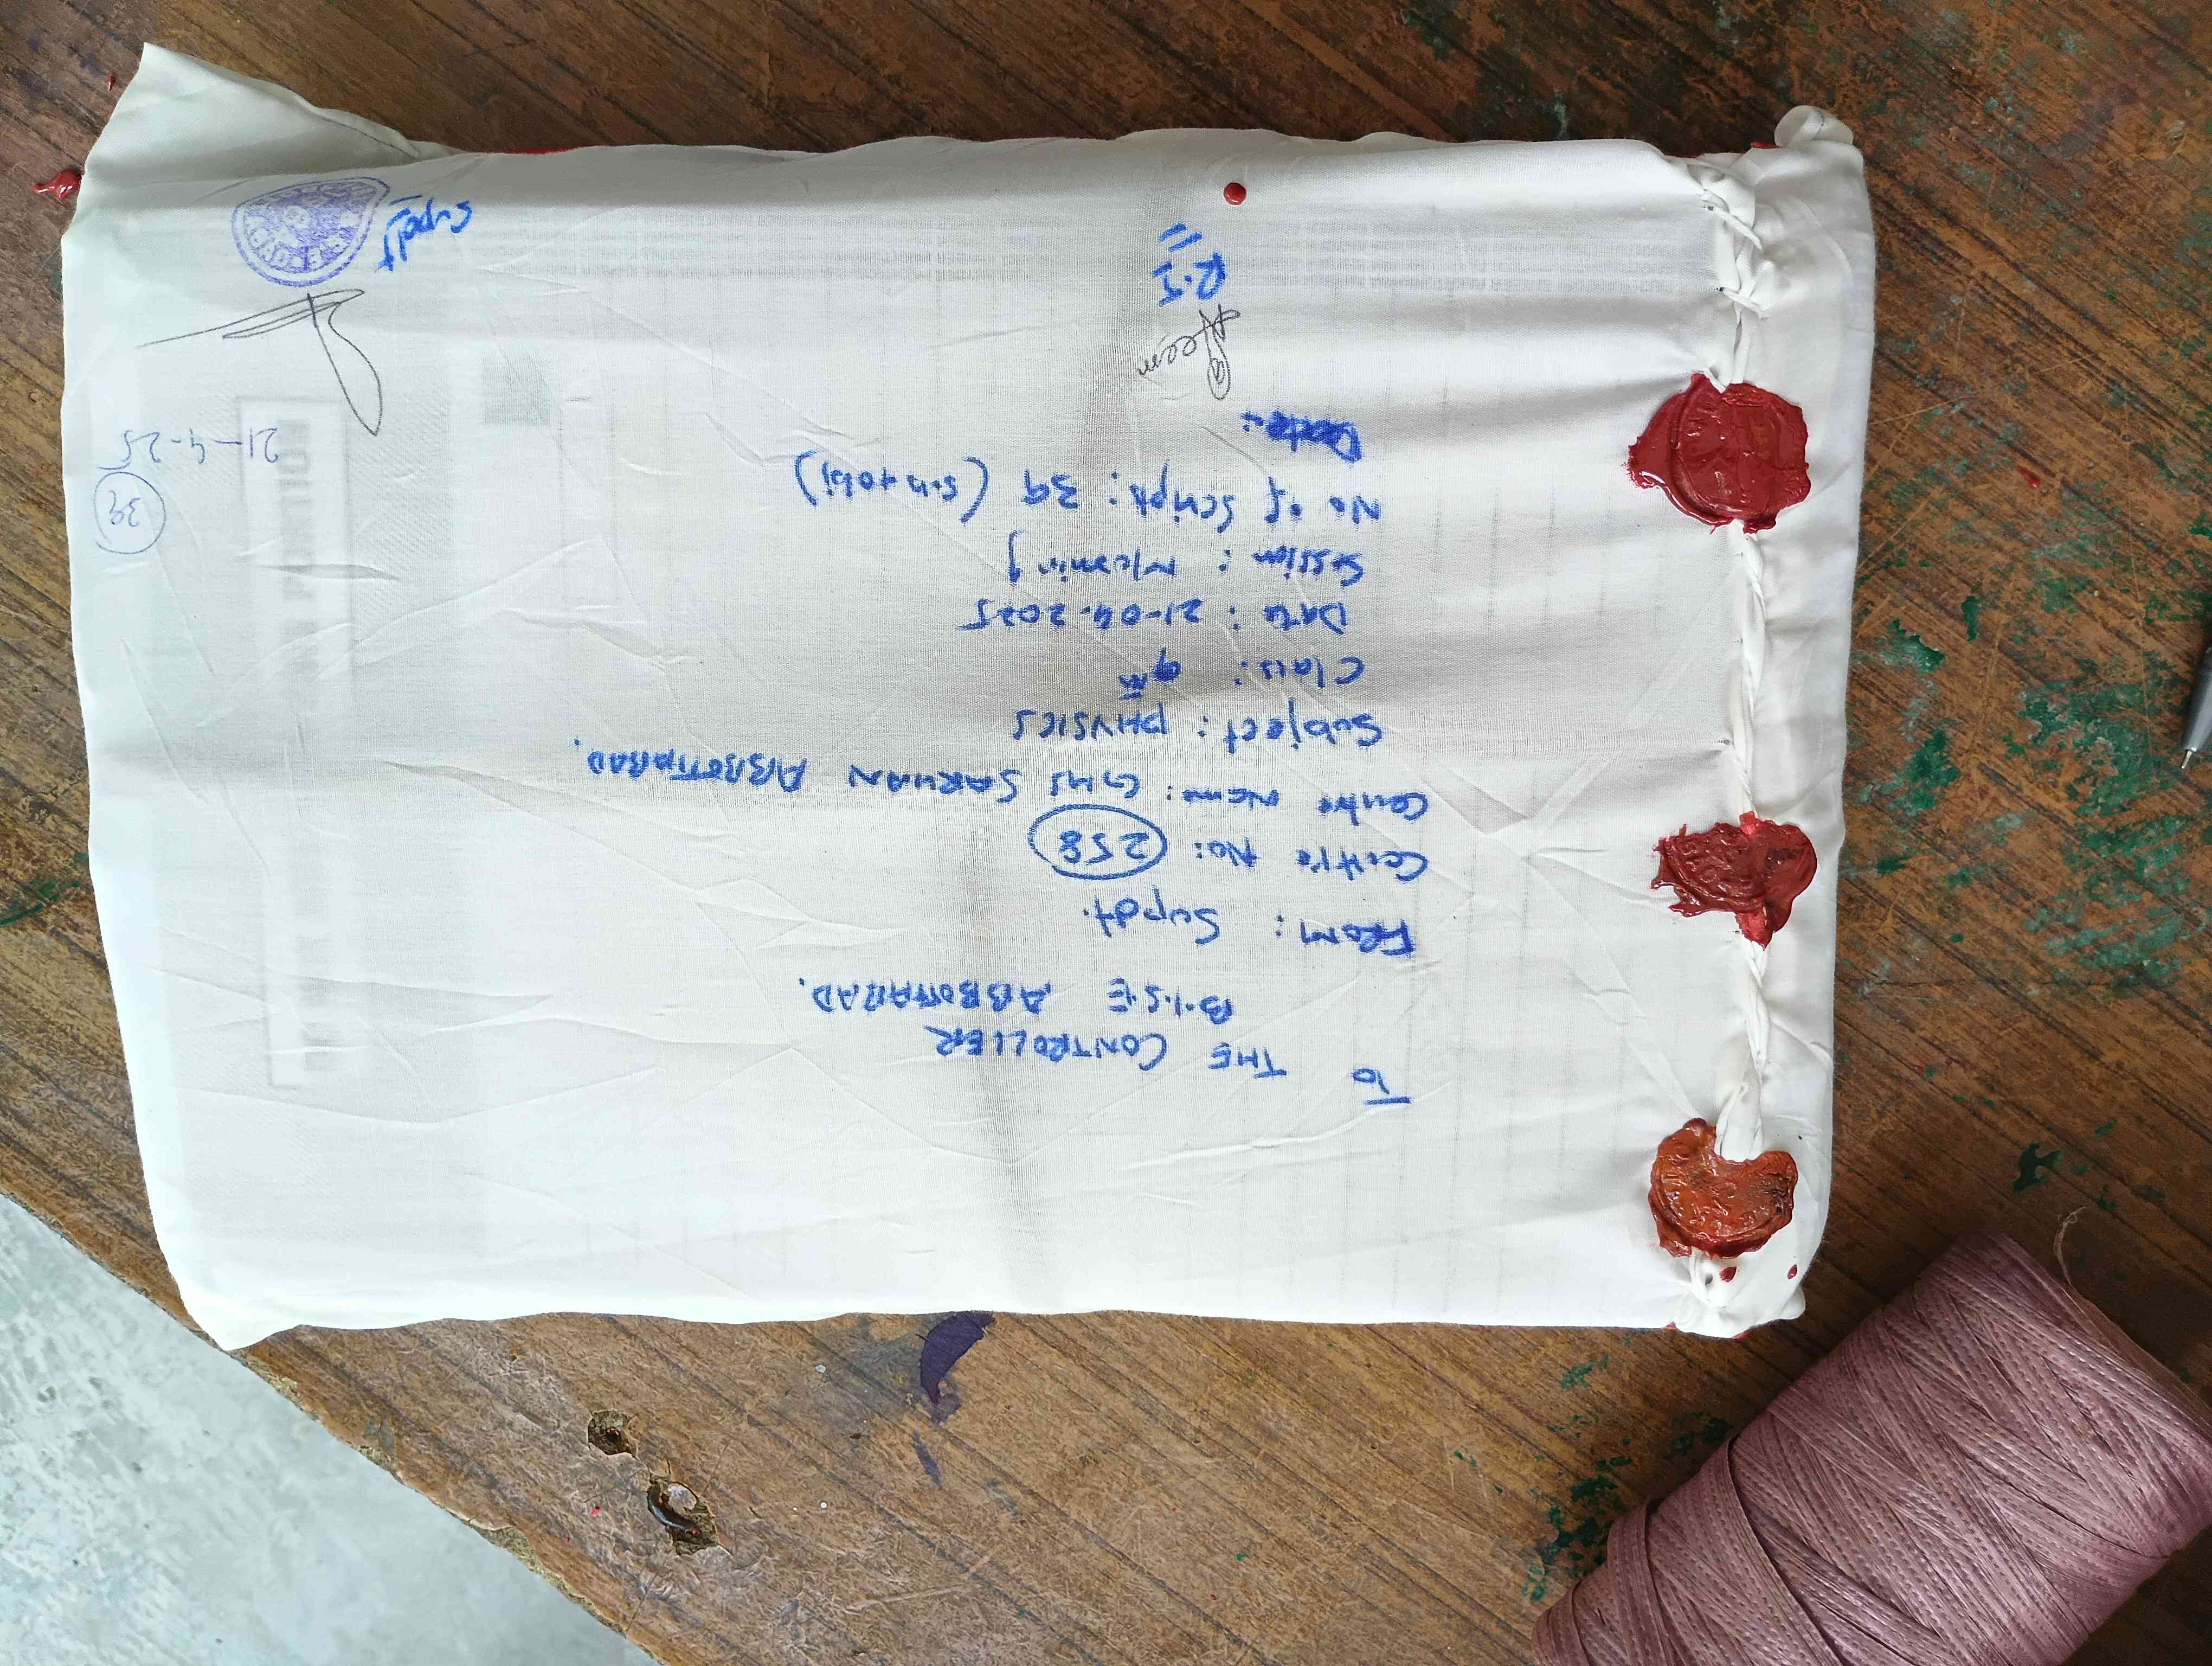 To
THE CONTROLLER
B.I.S.E ABBOTTABAD.
FROM: Supdt.
Centre No: 258
Centre Name: GHS SARHAN ABBOTTABAD.
Subject: PHYSICS
Class: 9th
Date: 21-04-2025
Session: Morning
No of Script: 39
Date:
R.I
Supdt
21-4-25
39